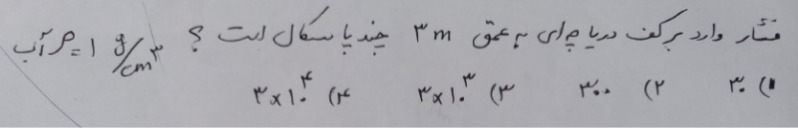 فشار وارد بر کف دریاچه‌ای به عمق ۳ m چند پاسکال است ؟ ρآب = ۱ g/cm³
۱) ۳۰ ۲) ۳۰۰ ۳) ۳×۱۰³ ۴) ۳×۱۰⁴